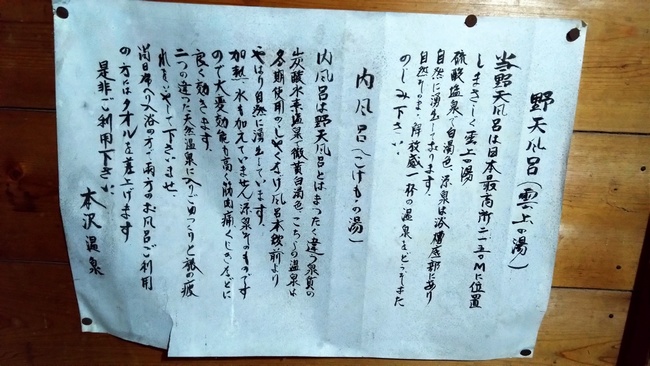 野天風呂(雲上の湯)
当野天風呂は日本最高所二一五〇Mに位置
しまさしく雲上の湯
硫酸塩泉で白濁色、源泉は浴槽底部にあり
自然に湧生しております。
自然そのまゝ、解放感一杯の温泉をどうぞおた
のしみ下さい。
内風呂(こけももの湯)
内風呂は野天風呂とはまったく違う泉質の
炭酸水素塩泉で微黄白濁色、こちらの温泉は
冬期使用の
やはり自然に湧生しています。
加熱、水を加えていません。源泉そのものです
ので大変効能も高く筋肉痛、くじきなどに
良く効きます。
二つの違った天然温泉に入りごゆっくりと旅の疲
れをいやして下さいませ。
尚日帰り入浴の方で、両方のお風呂ご利用
の方にはタオルを差上げます
是非ご利用下さい。
本沢温泉